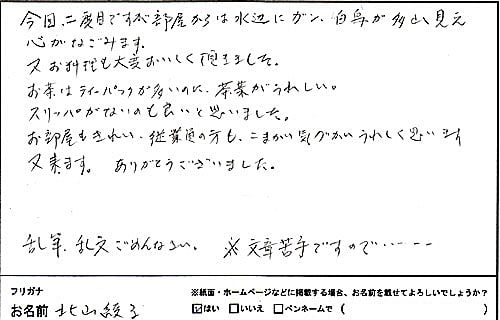 今回、二度目ですが部屋からは水辺にガン、白鳥が沢山見え
心がなごみます。
又お料理も大変おいしく頂きました。
お茶はティーパックが多いのに、茶葉がうれしい。
スリッパがないのも良いと思いました。
お部屋もきれい、従業員の方も、こまかい気づかいうれしく思います
又来ます。ありがとうございました。
乱筆、乱文ごめんなさい。 ※文章苦手ですので・・・・--
フリガナ
※紙面・ホームページなどに掲載する場合、お名前を載せてよろしいでしょうか?
お名前 北山綾子 ☑はい □いいえ □ペンネームで (